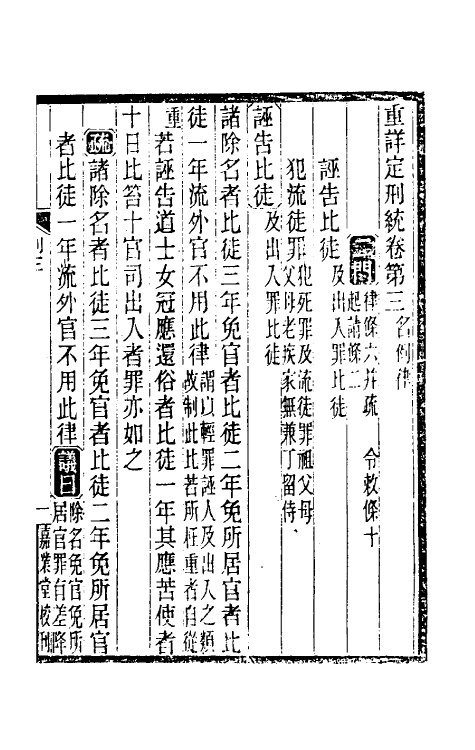 重詳定刑統卷第三 名例律
二門 律條六并疏 令敕條十
起請條二
誣告比徒 及出入罪比徒
犯流徒罪 犯死罪及流徒罪祖父母
父母老疾家無兼丁留侍
誣告比徒 及出入罪比徒
諸除名者比徒三年免官者比徒二年免所居官者比
徒一年流外官不用此律 謂以輕罪誣人及出入之類
故制此比若所枉重者自從
重 若誣告道士女冠應還俗者比徒一年其應苦使者
十日比笞十官司出入者罪亦如之
疏 諸除名者比徒三年免官者比徒二年免所居官
者比徒一年流外官不用此律 議曰 除名免官免所
居官罪有差降
一 嘉業堂校刊